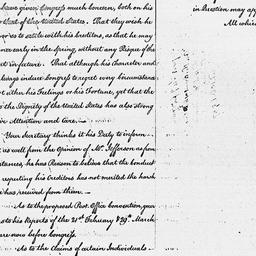 have given Congress much concern, both on his
that of the United States. That they wish he
to settle with his Creditors, as that he may
early in the Spring, without any Risque of the
in future. That although his Character and
always induce Congress to regret every Circumstance
either his Feelings or Fortune, yet that the
the Dignity of the United States has also strong
Attention and Care. —
Your Secretary thinks it his Duty to inform
as well from the Opinion of Mr. Jefferson as from
he has Reason to believe that the conduct
respecting his Creditors has not merited the harsh
has received from them. —
As to the proposed Post Office Convention, your
his Reports of the 21st February & 29th March
now before Congress.
As to the Claims of certain Individuals —
in Question may app
All which